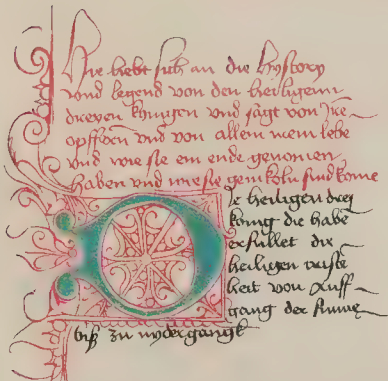 Hie hebt sich an die hystory
vnd legend von den heiligenn
dreyen kyngen vnd sagt von Jre
opffern vnd von allem irem lebē
vnd wie sie ein ende genomen
haben vnd wie sie gein koln sind kome
Die heiligen drey
konig die habē
erfullet die
heiligen
heit von Auff
gang der sunne
biß zu nydergangk